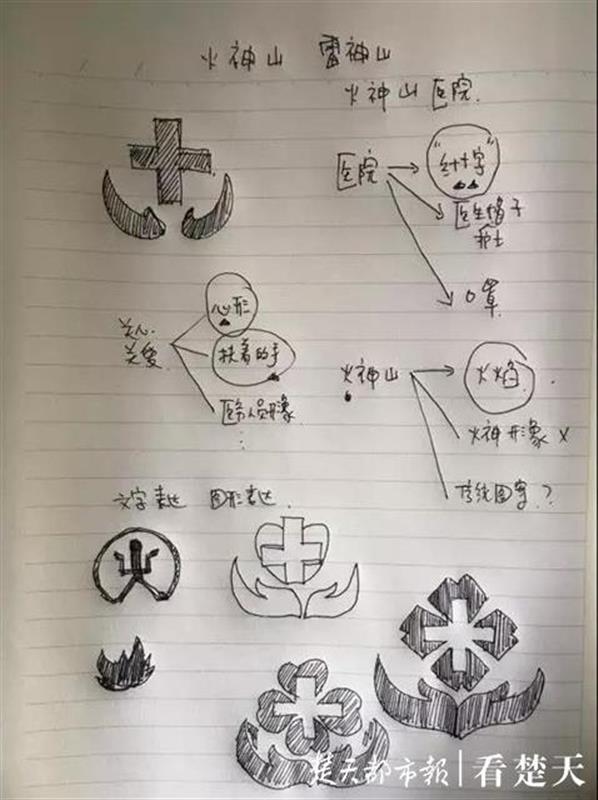 火神山 雷神山
火神山医院
医院
"红十字"
医生帽子
护士
口罩
关心
关爱
心形
扶着的手
医务人员形象
火神山
火焰
火神形象 x
传统图案?
文字表达 图形表达
楚天都市報 | 看楚天